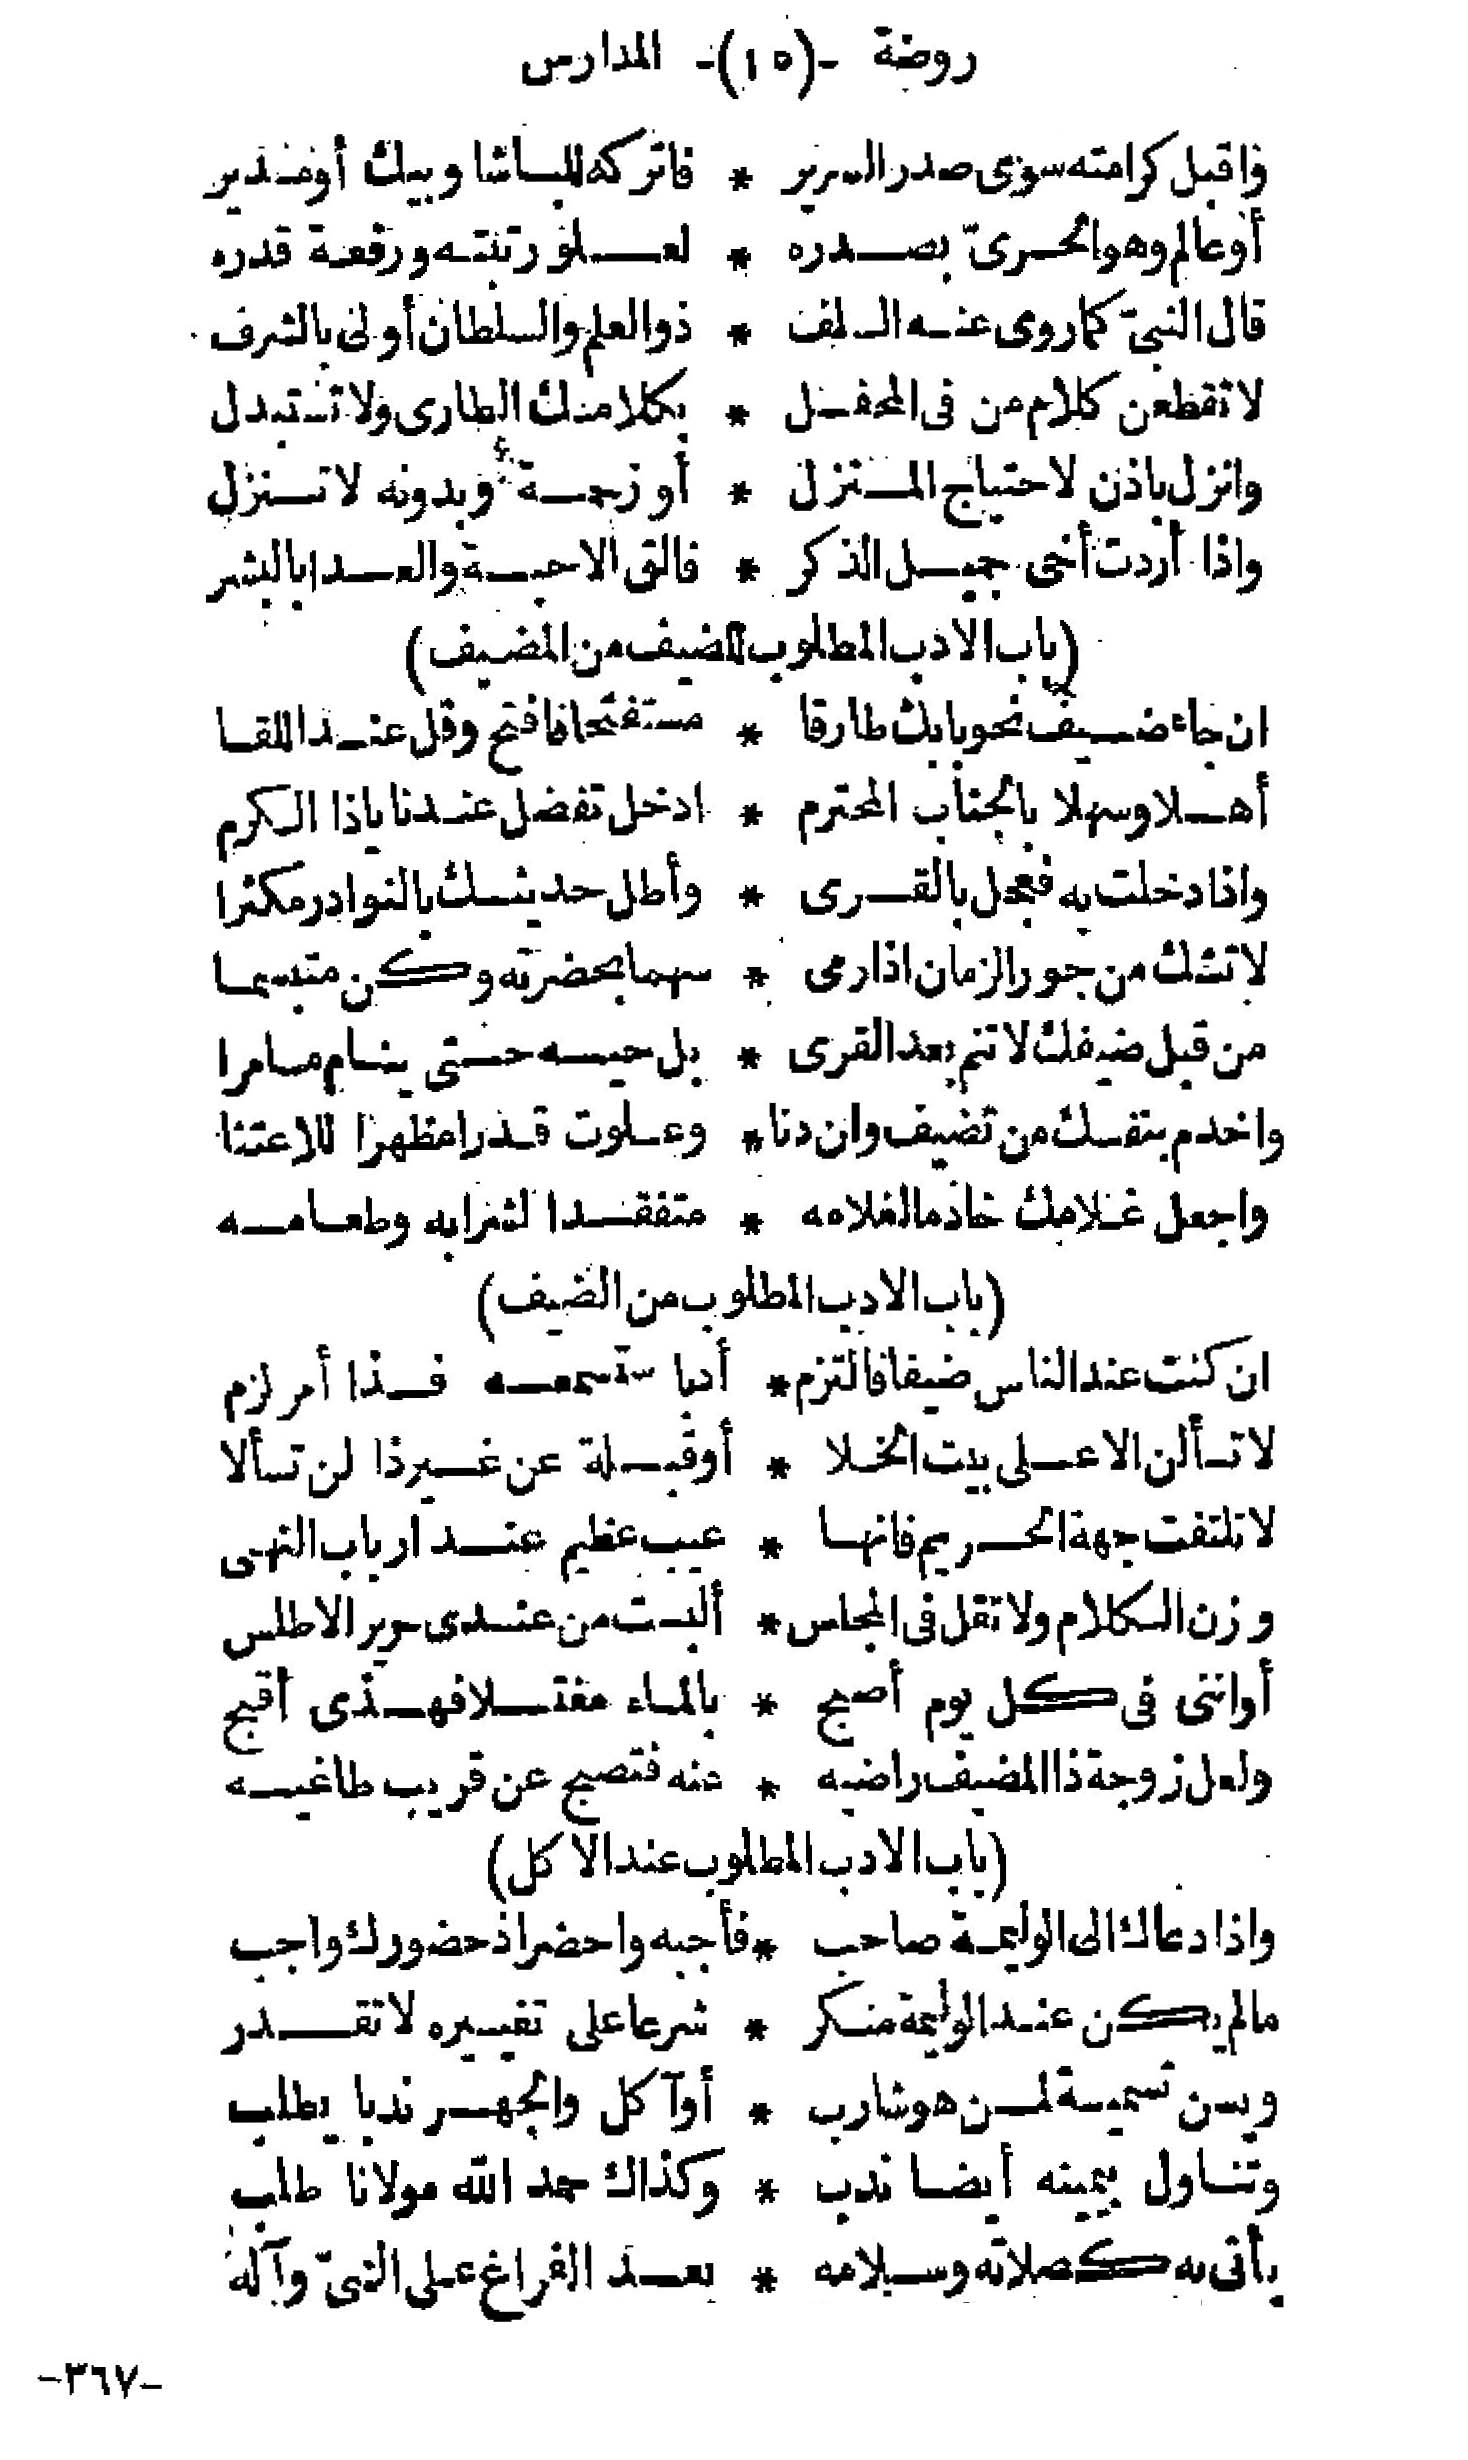 روضة -(١٥)- المدارس
واقبل كرامته سوى صدر السرير * فاتركه للباشا وبيك أومشير
أوعالم وهو الحرىّ بصدره * لعلو رتبته ورفعة قدره
قال النبىّ كما روى عنه السلف * ذو العلم والسلطان أولى بالشرف
لا تقطعن كلام من فى المحفل * بكلامك الطارى ولا تستبدل
وانزل باذن لاحتياج المنزل * أو زحمة وبدونه لا تنزل
واذا أردت أخى جميل الذكر * فالق الاحبة والعدا بالبشر
(باب الادب المطلوب للضيف من المضيف)
ان جاء ضيف نحو بابك طارقا * مستفتحا فافتح وقل عند اللقا
أهلا وسهلا بالجناب المحترم * ادخل تفضل عندنا ياذا الكرم
واذا دخلت به فعجل بالقرى * وأطل حديثك بالنوادر مكثرا
لا تشك من جور الزمان اذا رمى * سهما بحضرته وكن متبسما
من قبل ضيفك لا تنم بعد القرى * بل حيه حتى ينام مسامرا
واخدم بنفسك من تضيف وان دنا * وعلوت قدرا مظهرا للاعتنا
واجعل غلامك خادما لغلامه * متفقدا لشرابه وطعامه
(باب الادب المطلوب من الضيف)
ان كنت عند الناس ضيفا فالتزم * أدبا ستسمعه فذا أمر لزم
لا تسألن الا على بيت الخلا * أوقبلة عن غيرذا لن تسألا
لا تلتفت جهة الحريم فانها * عيب عظيم عند ارباب النهى
وزن الكلام ولا تقل فى المجلس * ألبست من عندى حرير الاطلس
أواننى فى كل يوم أصبح * بالماء مغتسلا فهذى أقبح
ولعل زوجة ذا المضيف راضيه * عنه فتصبح عن قريب طاغيه
(باب الادب المطلوب عند الاكل)
واذا دعاك الى الوليمة صاحب * فأجبه واحضر اذ حضورك واجب
مالم يكن عند الوليمة منكر * شرعا على تغييره لا تقدر
ويسن تسمية لمن هو شارب * أوآكل والجهر ندبا يطلب
وتناول بيمينه أيضا ندب * وكذاك حمد الله مولانا طلب
يأتى به كصلاته وسلامه * بعد الفراغ على النبىّ وآله
-٣٦٧-